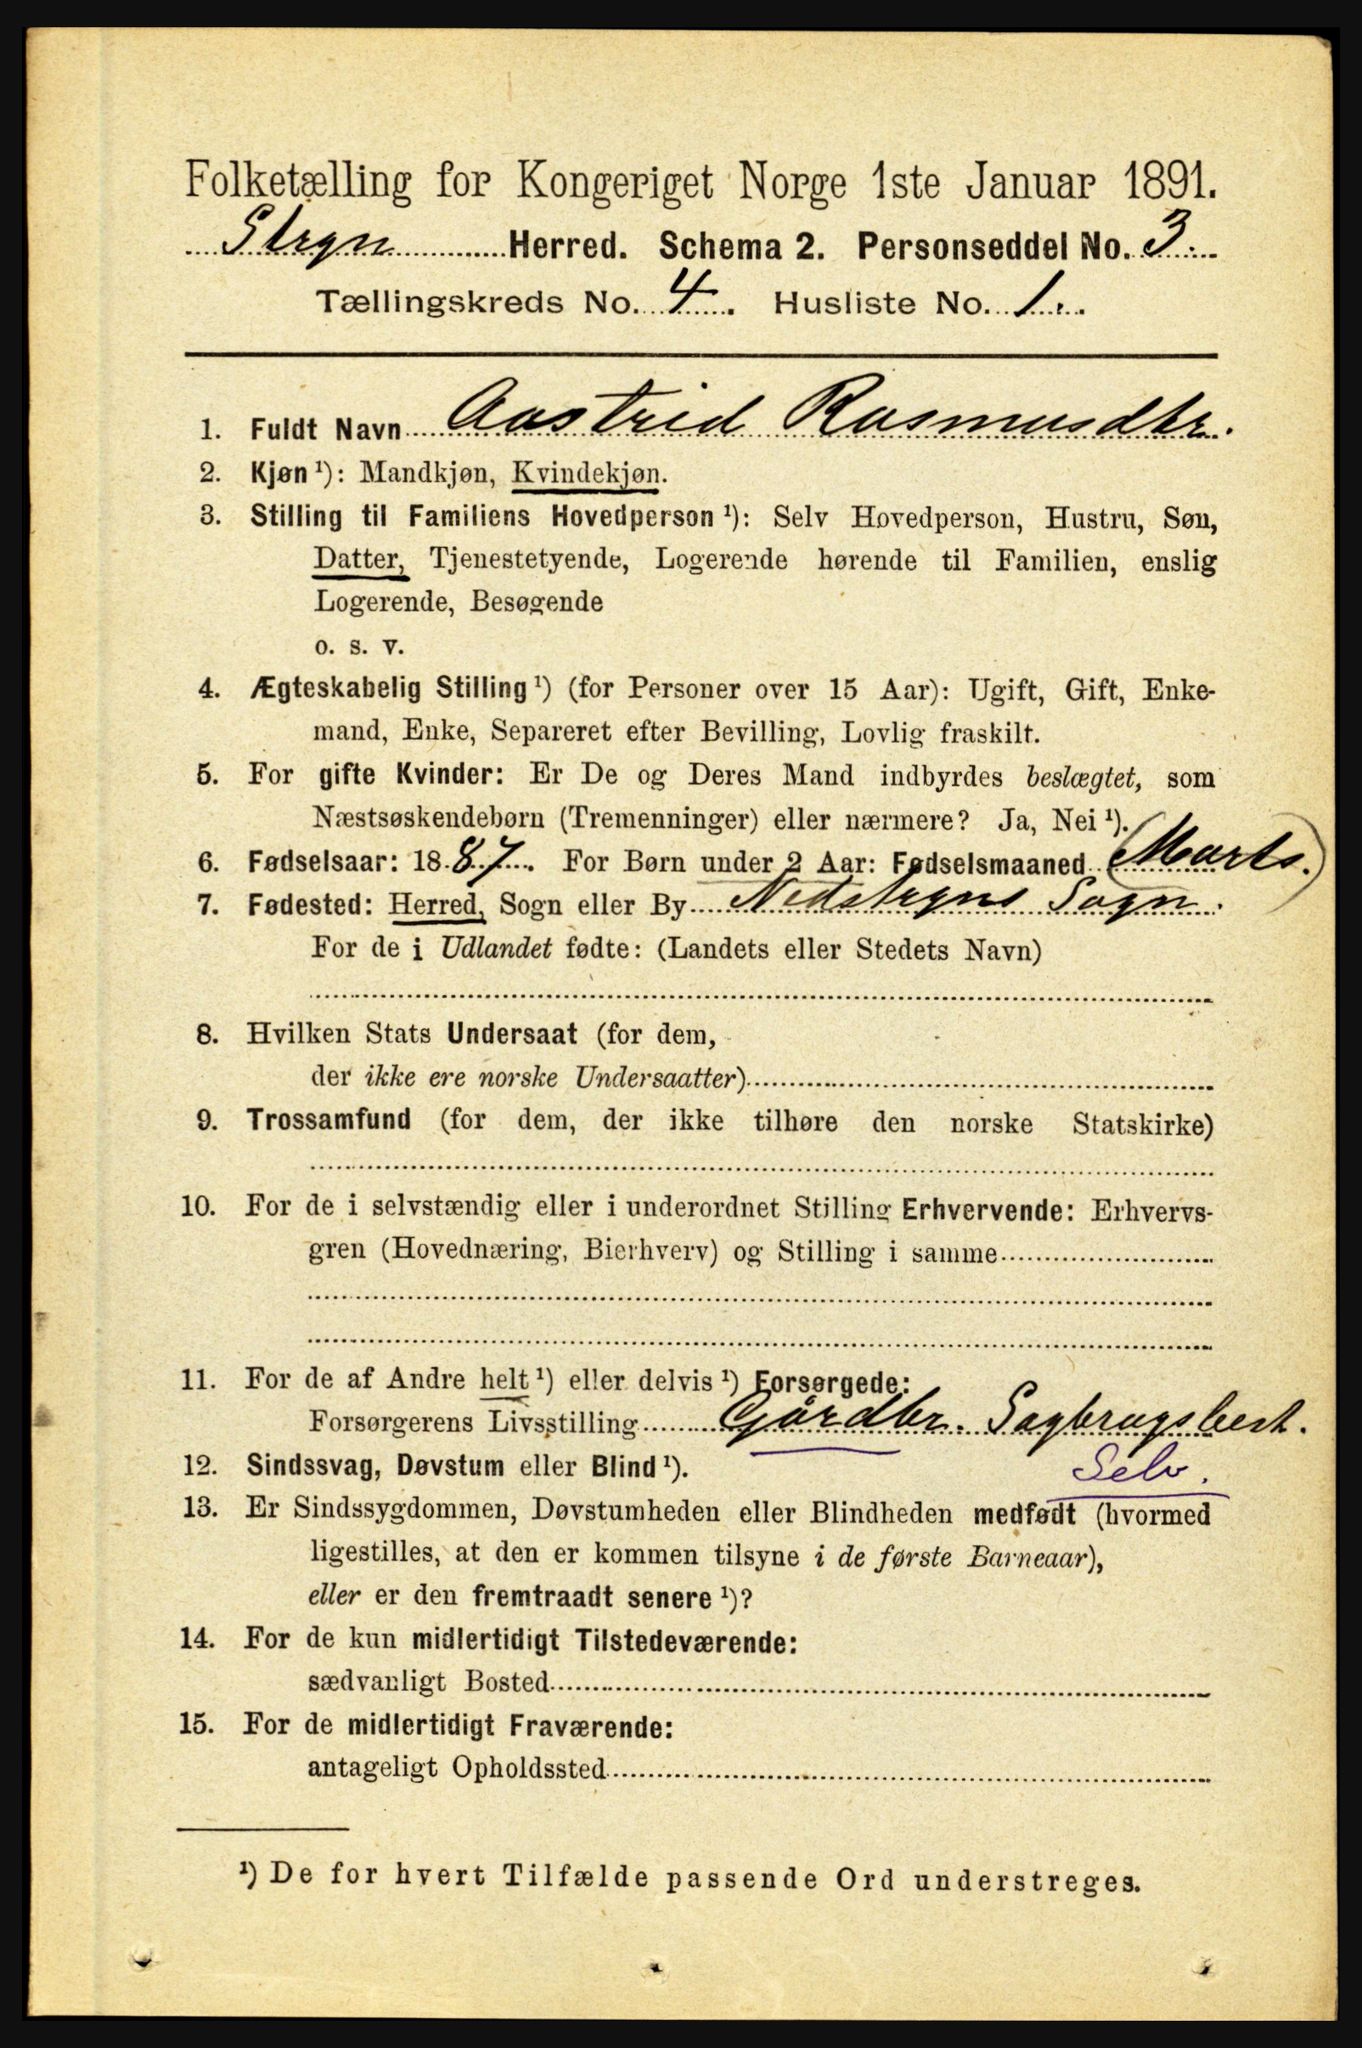 Folketælling for Kongeriget Norge 1ste Januar 1891.
Stryn Herred. Schema 2. Personseddel No. 3.
Tællingskreds No. 4. Husliste No. 1.
1. Fuldt Navn Aastrid Rasmusdtr.
2. Kjøn ¹): Mandkjøn, Kvindekjøn.
3. Stilling til Familiens Hovedperson ¹): Selv Hovedperson, Hustru, Søn,
Datter, Tjenestetyende, Logerende hørende til Familien, enslig
Logerende, Besøgende
o. s. v.
4. Ægteskabelig Stilling ¹) (for Personer over 15 Aar): Ugift, Gift, Enke-
mand, Enke, Separeret efter Bevilling, Lovlig fraskilt.
5. For gifte Kvinder: Er De og Deres Mand indbyrdes beslægtet, som
Næstsøskendebørn (Tremenninger) eller nærmere? Ja, Nei ¹).
6. Fødselsaar: 1887. For Børn under 2 Aar: Fødselsmaaned (Marts.)
7. Fødested: Herred, Sogn eller By Nedstryns Sogn.
For de i Udlandet fødte: (Landets eller Stedets Navn)
8. Hvilken Stats Undersaat (for dem,
der ikke ere norske Undersaatter)
9. Trossamfund (for dem, der ikke tilhøre den norske Statskirke)
10. For de i selvstændig eller i underordnet Stilling Erhvervende: Erhvervs-
gren (Hovednæring, Bierhverv) og Stilling i samme
11. For de af Andre helt ¹) eller delvis ¹) Forsørgede:
Forsørgerens Livsstilling Gårdbr. Sagbrugsbest.
12. Sindssvag, Døvstum eller Blind ¹). Selv.
13. Er Sindssygdommen, Døvstumheden eller Blindheden medfødt (hvormed
ligestilles, at den er kommen tilsyne i de første Barneaar),
eller er den fremtraadt senere ¹)?
14. For de kun midlertidigt Tilstedeværende:
sædvanligt Bosted
15. For de midlertidigt Fraværende:
antageligt Opholdssted
¹) De for hvert Tilfælde passende Ord understreges.